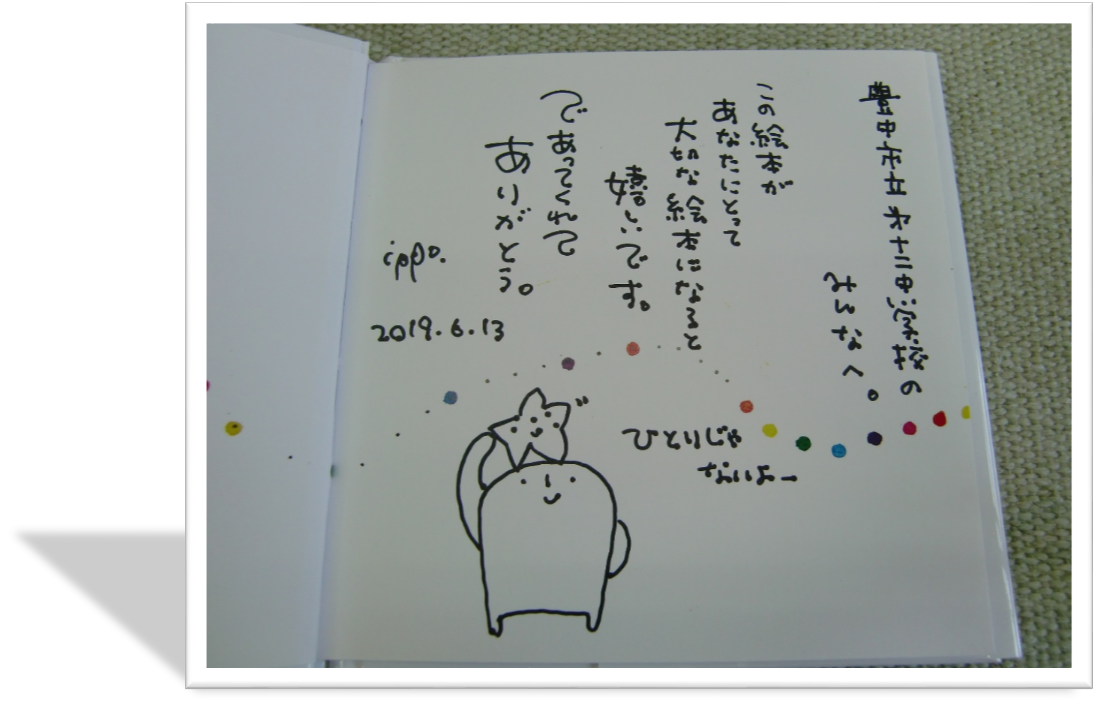 豊中市立第十二中学校の
みんなへ。
この絵本が
あなたにとって
大切な絵本になると
嬉しいです。
であってくれて
ありがとう。
ippo.
2019.6.13
ひとりじゃ
ないよー